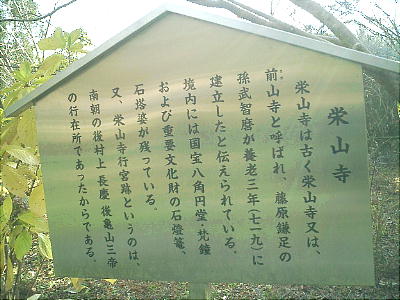 栄山寺
栄山寺は古く栄山寺又は、
前山寺と呼ばれ、藤原鎌足の
孫武智麿が養老三年(七一九)に
建立したと伝えられている。
境内には国宝八角円堂・梵鐘
および重要文化財の石燈篭、
石塔婆が残っている。
又、栄山寺行宮跡というのは、
南朝の後村上 長慶 後亀山三帝
の行在所であったからである。